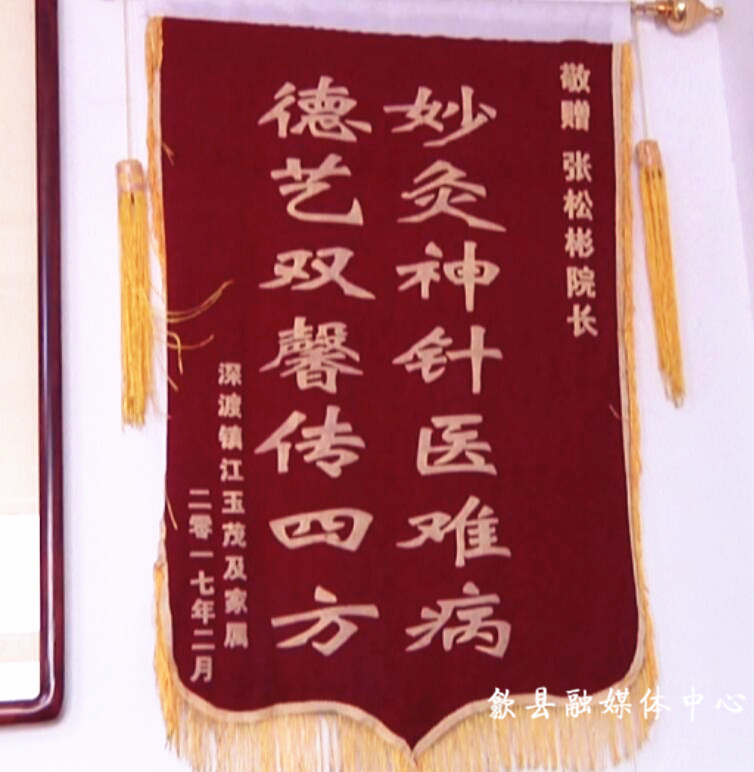 敬赠 张松彬院长
妙灸神针医难病
德艺双馨传四方
深渡镇江玉茂及家属
二零一七年二月
歙县融媒体中心